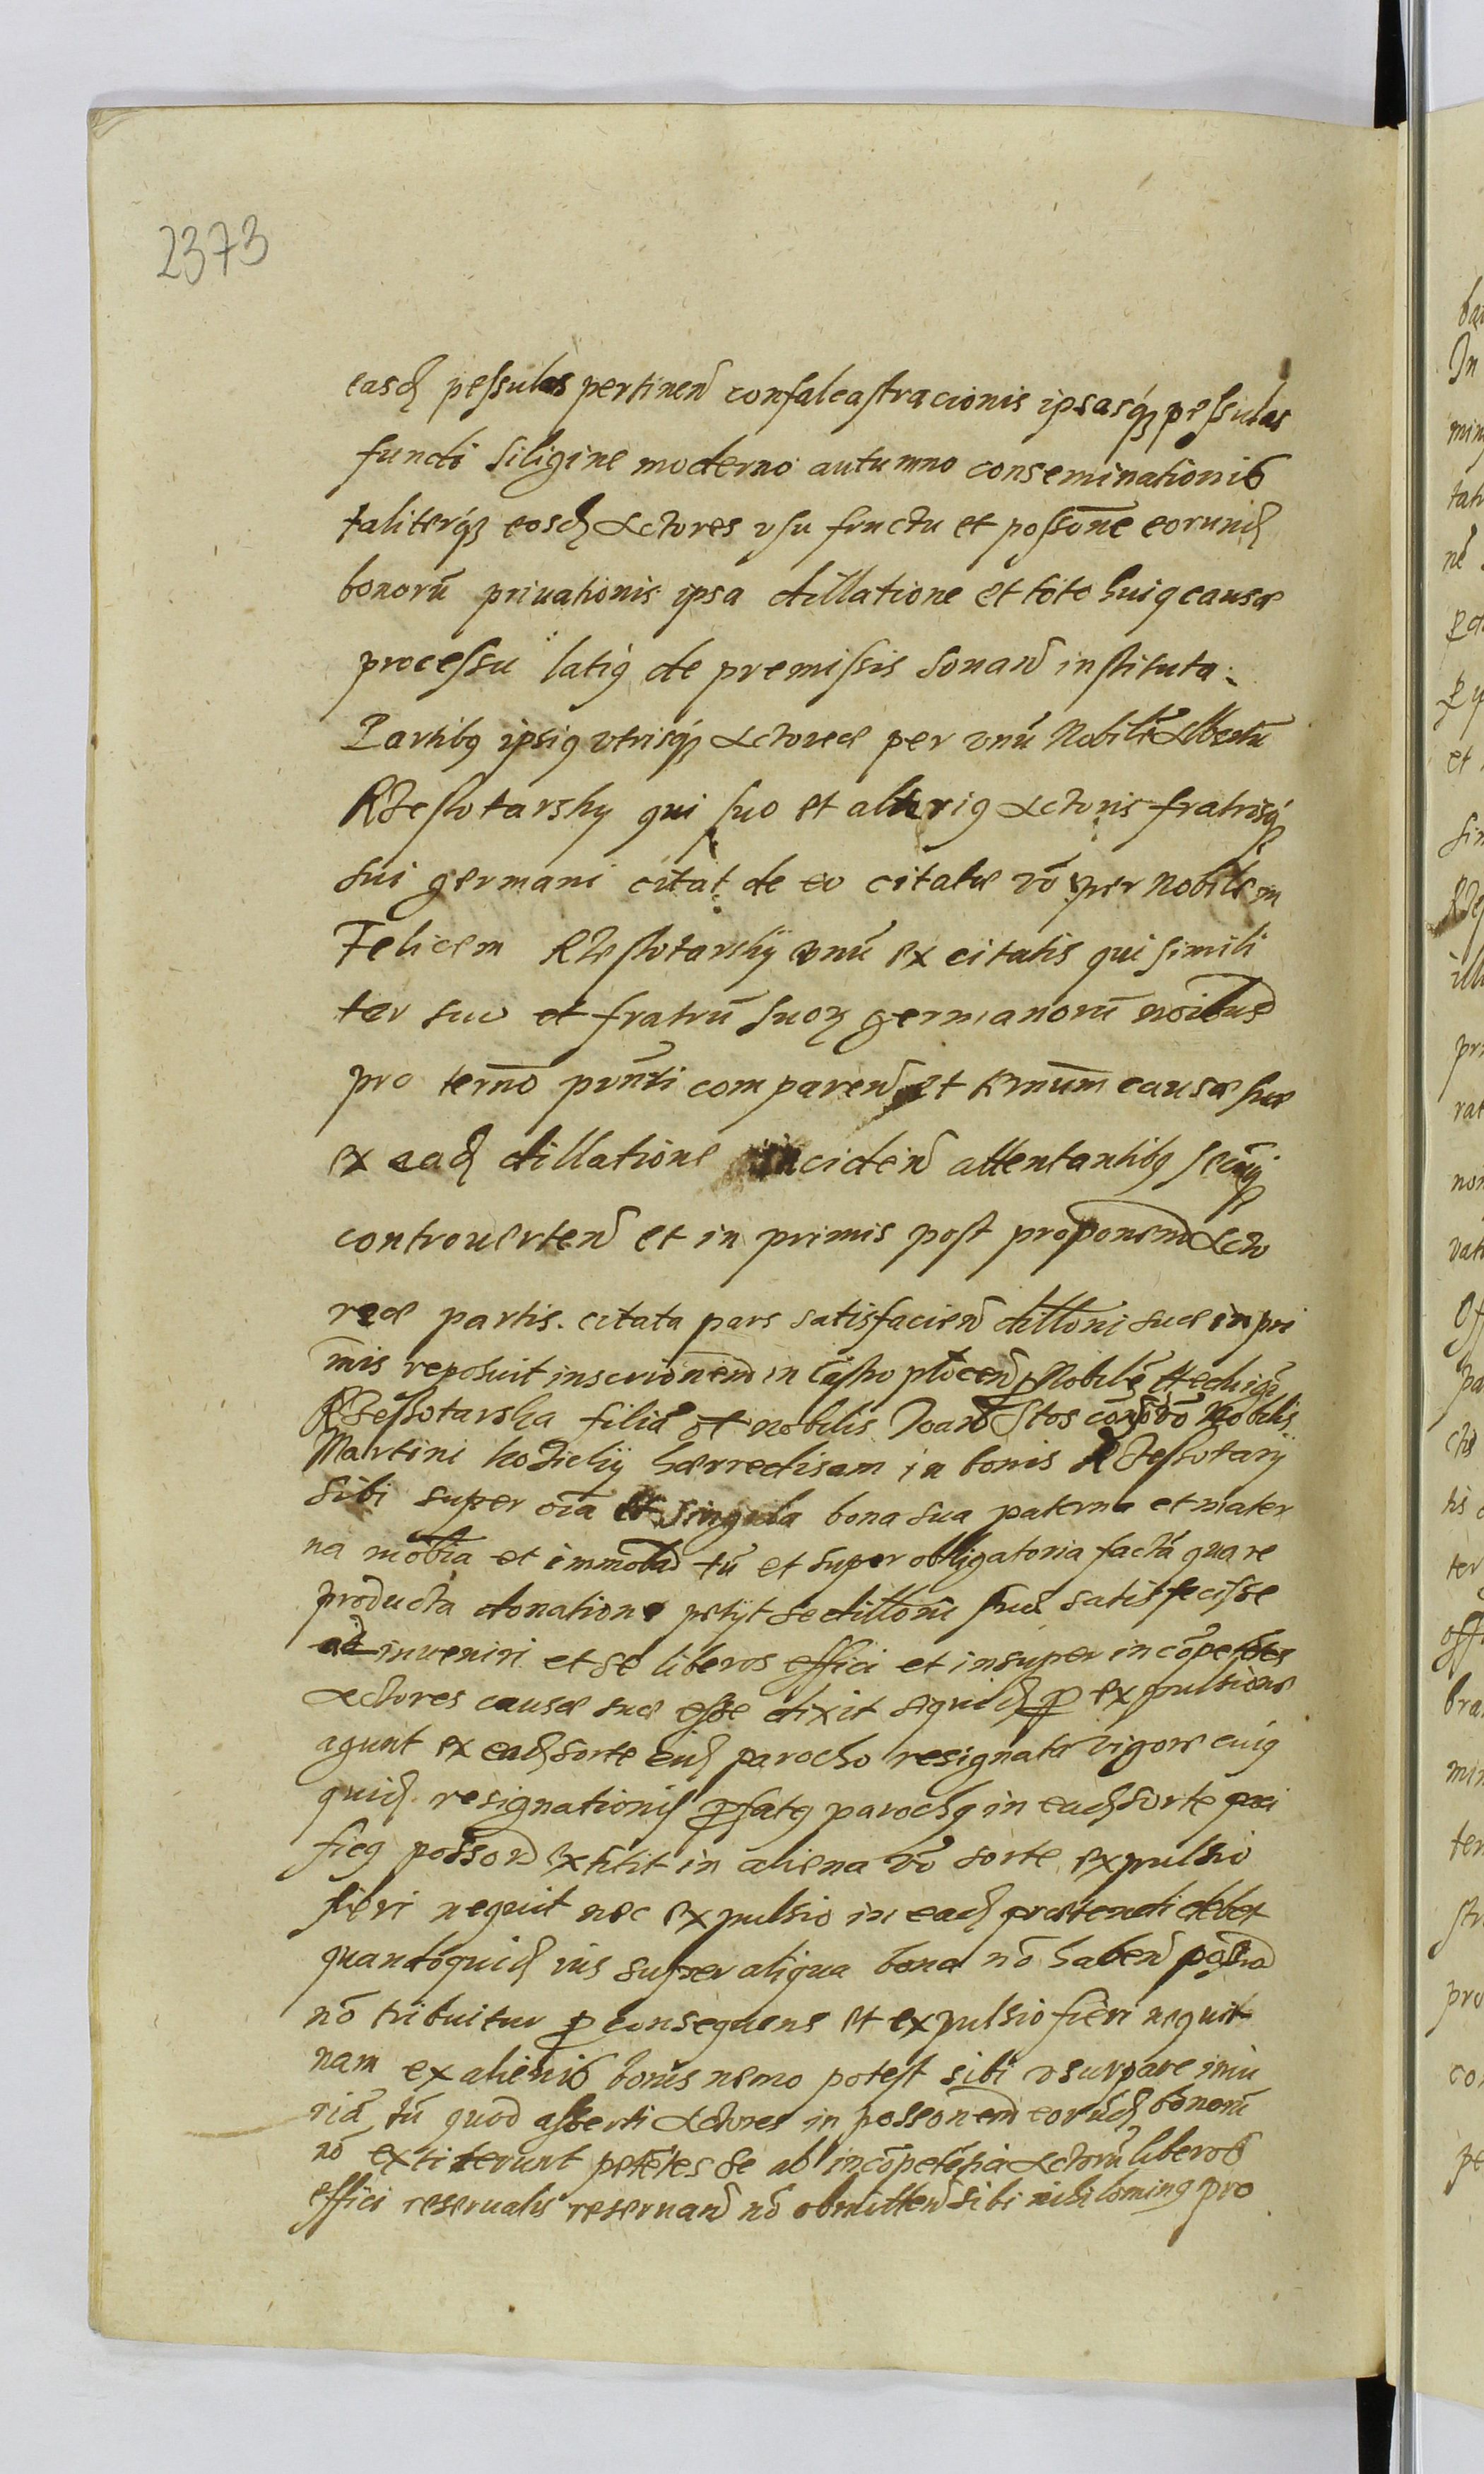 2373
easdē pessulas pertineñ confalcastracionis ipsasq́ꝫ pessulas
fundi siligine moderno autumno conseminationis
taliterq́ꝫ eosdē Actores vsu fructu et possōne eorundē
bonorū priuationis ipsa dillatione et toto huiꝯ causæ
processu latiꝯ de premissis sonañ instituta.
Partibꝯ ipsiꝯ vtrisqꝫ Actoreæ per vnū Nobilē Albertū
RZeszotarsky qui suo et alteriꝯ Actoris fratrisqꝫ
sui germani citat de eo citatæ vō per Nobilem
Felicem RZeszotarskÿ vnū ex citatis qui simili
ter suo et fratrū suoꝝ germanorū noībus
pro termō pūnti compareñ et terminum causæ suæ
ex eadē dillatione incideñ attentantibꝯ secūqꝫ
controuerteñ et in primis post proponem̄ Acto
reæ partis. citata pars satisfacieñ dillōni suæ in pri
mis reposuit inscrionem in Castro ploceñ ꝑ Nobilē Heduigā
RZeszotarska filiā ol nobilis Joañ Stos cōns vō Nobilis
Martini koZickÿ hærredisam in bonis RZeszotarÿ
sibi super oīa et singula bona sua paterna et mater
na mōbīa et immobīa tū et super obligatoria factā qua re
producta donatione petÿt se dillōni suæ satisfecisse
adinueniri et se liberos effici et insuper incōpetētes
Actores causæ suæ esse dixit siquidē ꝓ expulsione
agunt ex eadē sorte eidē parocho resignata vigore cuiꝯ
quidē resignationis p̄fatꝯ parochꝯ in eadē sorte paci
ficꝯ possor extitit in aliena vō sorte expulsio
fieri nequit nec expulsio in eadē prætendi debet
quandoquidē ius super aliqua bona nō habeñ possio
nō tribuitur ꝑ consequens et expulsio fieri nequit
nam ex alienis bonis nemo potest sibi vsurpare iniu
riā, tū quod asserti Actores in possonem eorūdē bonorū
nō extiterunt petētes se ab incōpetētia Actorū liberos
effici reseruatis reseruañ nō obmitteñ sibi nihilominꝯ pro